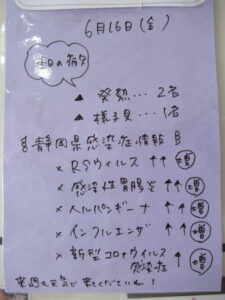 6月16日(金)
今日の病欠
▲ 発熱… 2名
▲ 様子見… 1名
静岡県感染症情報
× RSウイルス ↑↑ 増
× 感染性胃腸炎 ↑↑ 増
× ヘルパンギーナ ↑↑ 増
× インフルエンザ ↑↑ 増
× 新型コロナウイルス感染症 ↑ 増
来週も元気で来てくださいね!